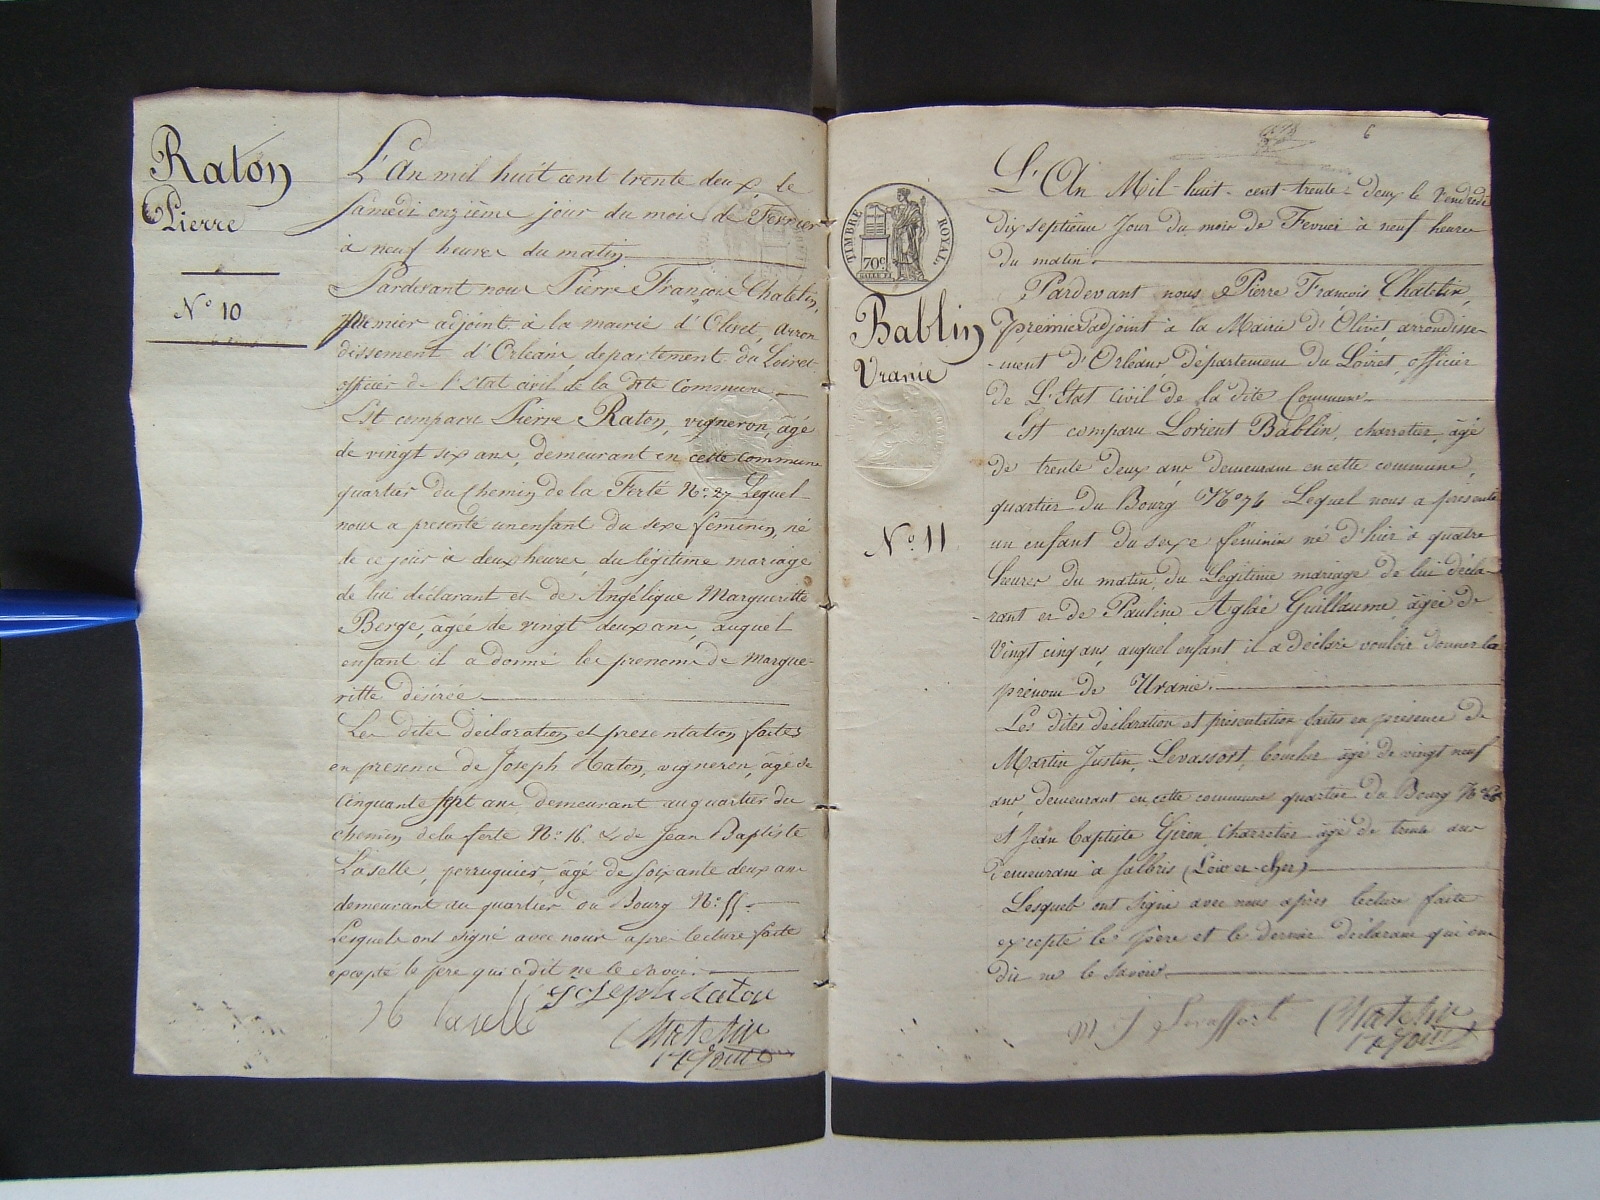 Raton
Pierre
N° 10
L'An mil huit cent trente deux, le
samedi onzième jour du mois de Fevrier
à neuf heures du matin
Pardevant nous Pierre François Chatelin,
premier adjoint à la mairie d'Olivet, arron
dissement d'Orleans departement du Loiret
officier de l'état civil de la dite Commune
Est comparu Pierre Raton, vigneron, âgé
de vingt six ans, demeurant en cette commune
quartier du Chemin de la Ferté N°. 27 Lequel
nous a presenté un enfant du sexe feminin, né
le ce jour à deux heures du légitime mariage
de lui déclarant et de Angélique Margueritte
Berge, âgée de vingt deux ans, auquel
enfant il a donné les prenoms de Margue-
ritte désirée
Les dites déclaration et presentation faites
en presence de Joseph Raton, vigneron, âgé de
Cinquante sept ans demeurant au quartier du
chemin de la ferte N°. 16. & de Jean Baptiste
Laselle, perruquier, âgé de soixante deux ans
demeurant au quartier du Bourg N°. 55.
Lesquels ont signé avec nous après lecture faite
excepté le pere qui a dit ne le savoir.
Joseph Raton
Laselle
Chatelin
adjoint
6
TIMBRE ROYAL
70c
Bablin
Uranie
N°. 11
L'An Mil-huit-cent-trente-deux le Vendredi
dix septième Jour du mois de Fevrier à neuf heures
du matin.
Pardevant nous Pierre François Chatelin,
premier adjoint à la Mairie d'Olivet, arrondisse-
-ment d'Orléans, département du Loiret, officier
de L'Etat Civil de la dite Commune
Est comparu Lorient Bablin, charretier, âgé
de trente deux ans demeurant en cette commune,
quartier du Bourg N° 74 Lequel nous a présenté
un enfant du sexe féminin né d'hier à quatre
heures du matin, du Légitime mariage de lui décla-
rant et de Pauline Aglaé Guillaume, âgée de
Vingt cinq ans, auquel enfant il a déclaré vouloir donner le
prénom de Uranie.
Les dites déclaration et présentation faites en présence de
Martin Justin Levassort, boucher âgé de vingt neuf
ans demeurant en cette commune quartier du Bourg
et Jean Baptiste Giron Charretier âgé de trente ans
demeurant à Salbris (Loir et-cher)
Lesquels ont signé avec nous après lecture faite
excepté le père et le dernier déclarant qui ont
dit ne le savoir
M J Levassort
Chatelin
adjoint